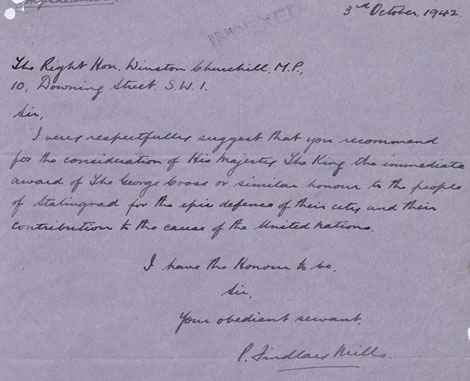 3rd October, 1942.
The Right Hon. Winston Churchill, M.P.,
10, Downing Street. S.W.1.
Sir,
I very respectfully suggest that you recommend
for the consideration of His Majesty The King the immediate
award of The George Cross or similar honour to the people
of Stalingrad for the epic defence of their city and their
contribution to the cause of the United Nations.
I have the Honour to be,
Sir,
Your obedient servant,
P. Findlay Mills.